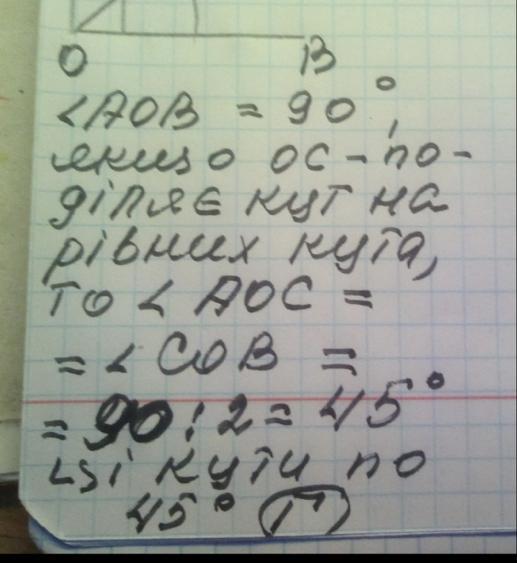 O B
∠AOB = 90°,
якщо OC - по-
діляє кут на
рівних кута,
то ∠ AOC =
= ∠ COB =
= 90 : 2 = 45°
ці кути по
45° Г